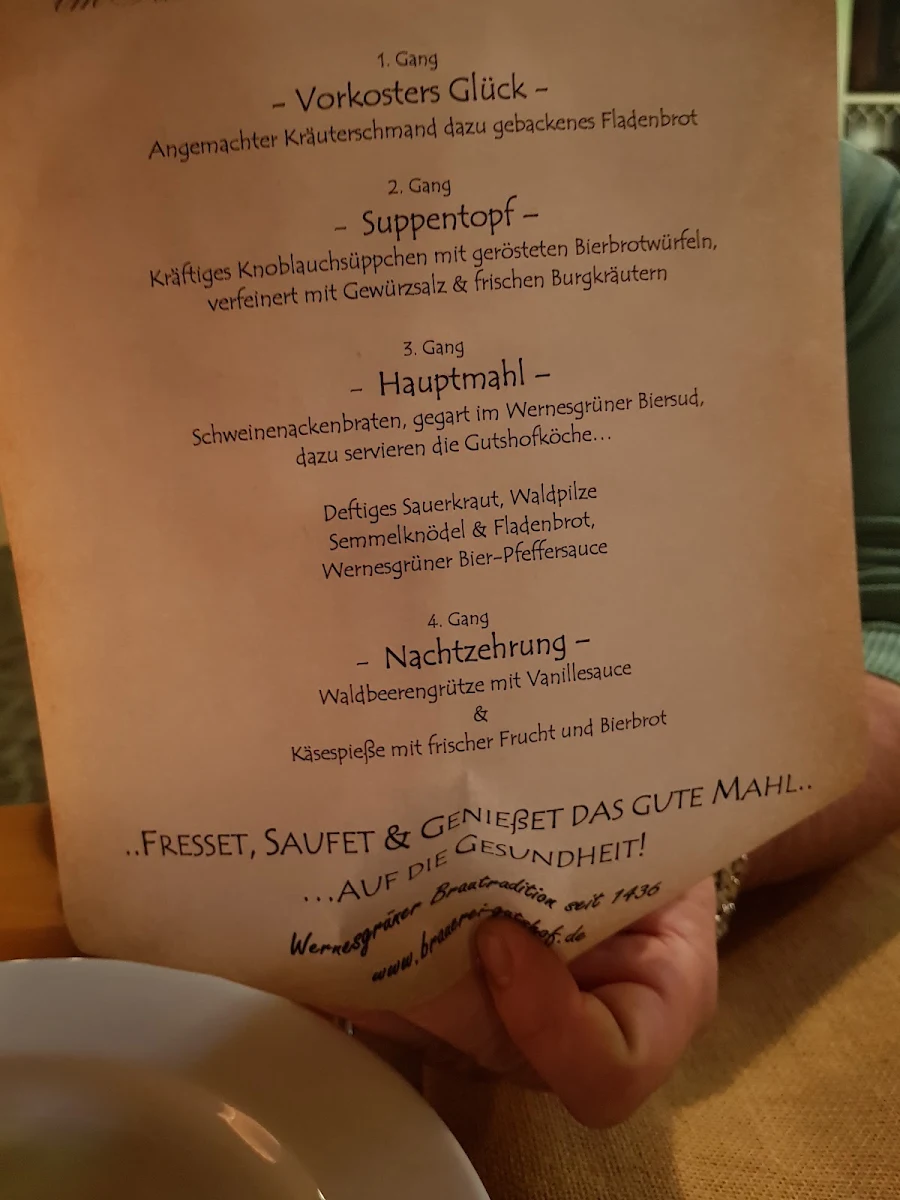 1. Gang
– Vorkosters Glück –
Angemachter Kräuterschmand dazu gebackenes Fladenbrot
2. Gang
– Suppentopf –
Kräftiges Knoblauchsüppchen mit gerösteten Bierbrotwürfeln,
verfeinert mit Gewürzsalz & frischen Burgkräutern
3. Gang
– Hauptmahl –
Schweinenackenbraten, gegart im Wernesgrüner Biersud,
dazu servieren die Gutshofköche...
Deftiges Sauerkraut, Waldpilze
Semmelknödel & Fladenbrot,
Wernesgrüner Bier-Pfeffersauce
4. Gang
– Nachtzehrung –
Waldbeerengrütze mit Vanillesauce
&
Käsespieße mit frischer Frucht und Bierbrot
..FRESSET, SAUFET & GENIEßET DAS GUTE MAHL..
...AUF DIE GESUNDHEIT!
Wernesgrüner Brautradition seit 1436
www.brauerei-gutshof.de